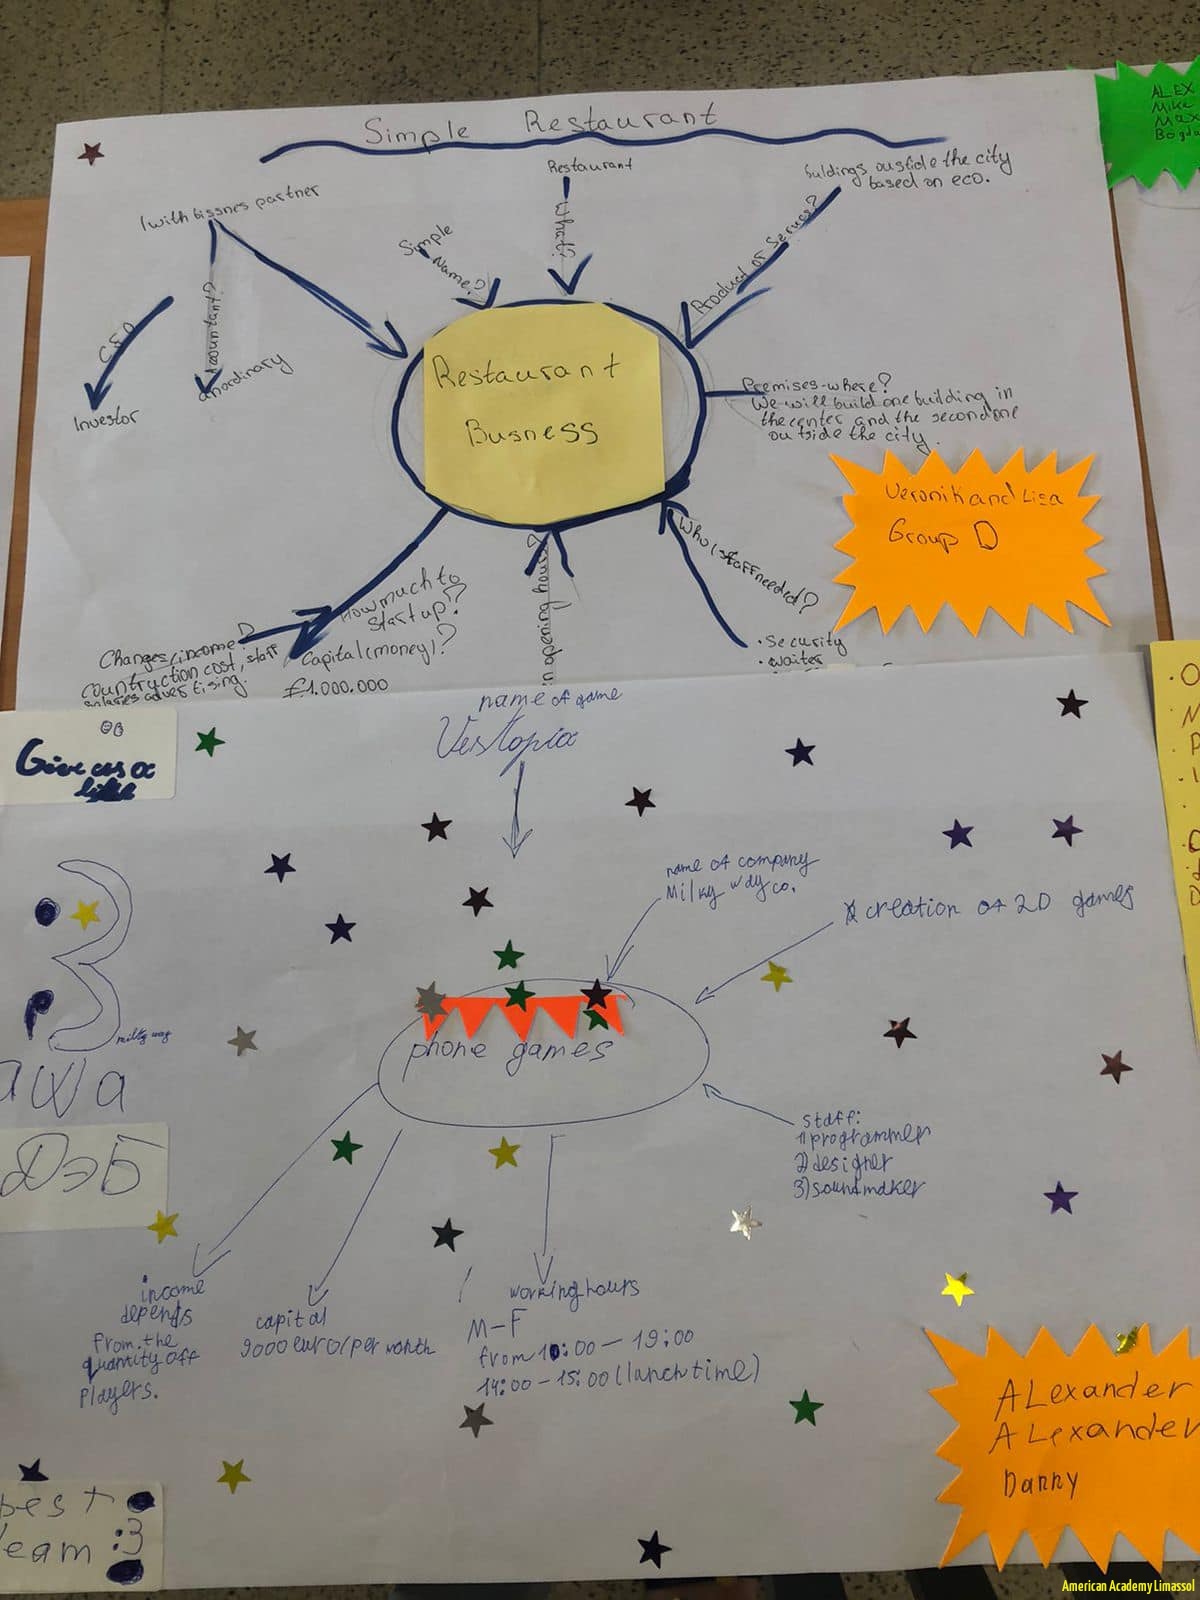 Simple Restaurant
ALEX
Mike
Max
Bogda
1 with bissnes partner
Simple
Name?
Restaurant
What?
buldings oustide the city
based on eco.
Product or Service?
CEO
Investor
Accountant?
anordinary
Restaurant
Busness
Premises-where?
We will build one building in
the center and the second one
outside the city.
Veronik and Lisa
Group D
Who (staff needed)?
• Security
• waiter
opening hours?
How much to
start up?
Capital (money)?
£1.000.000
Changes/income?
countruction cost, staff
salaries advertising.
name of game
Vestopia
Give us a
like
name of company
Milky way co.
creation of 2D games
phone games
milky way
awa
ДэБ
staff:
1) programmer
2) designer
3) soundmaker
income
depends
from the
quantity off
players.
capital
9000 euro/per month
working hours
M-F
from 10:00 - 19:00
14:00 - 15:00 (lunch time)
Alexander
Alexander
Danny
best
team :3
American Academy Limassol